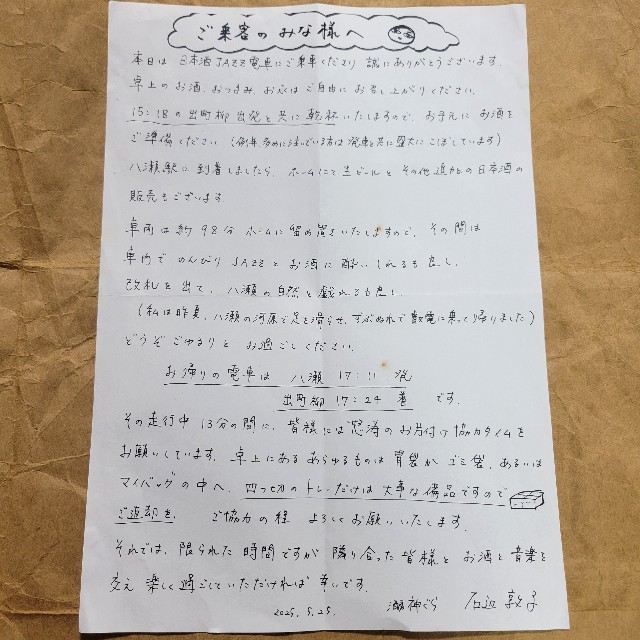 ご乗客のみな様へ
本日は 日本酒JAZZ電車にご乗車くださり 誠にありがとうございます。
卓上のお酒、おつまみ、お水は ご自由に お召し上がりください。
15:18の出町柳 出発と共に 乾杯いたしますので、お手元に お酒を
ご準備ください (毎年、多めに注いでいる方は 発車と共に盛大に こぼしています)
八瀬駅に 到着しましたら、ホームにて生ビールと その他 追加の日本酒の
販売もございます
車両は約98分 ホームに 留め置きいたしますので、その間は
車内で のんびり JAZZと お酒に 酔いしれるも良し、
改札を出て、八瀬の自然と戯れるも良し、
(私は昨夏、八瀬の河原で足を滑らせ、ずぶぬれで叡電に乗って帰りました)
どうぞ ごゆるりと お過ごしください。
お帰りの電車は 八瀬 17:11 発
出町柳 17:24 着 です。
その走行中 13分の間に、皆様には怒涛の お片付け協力タイムを
お願いしています。卓上にある あらゆるものは 胃袋か ゴミ袋、あるいは
マイバッグの中へ。四つ切のトレーだけは 大事な備品ですので
ご返却を。 ご協力の程 よろしくお願いいたします。
それでは、限られた 時間ですが 隣り合った 皆様と お酒と音楽を
交え 楽しく過ごしていただければ 幸いです。
2025.5.25. 酒神ぐら 石辺 敦子